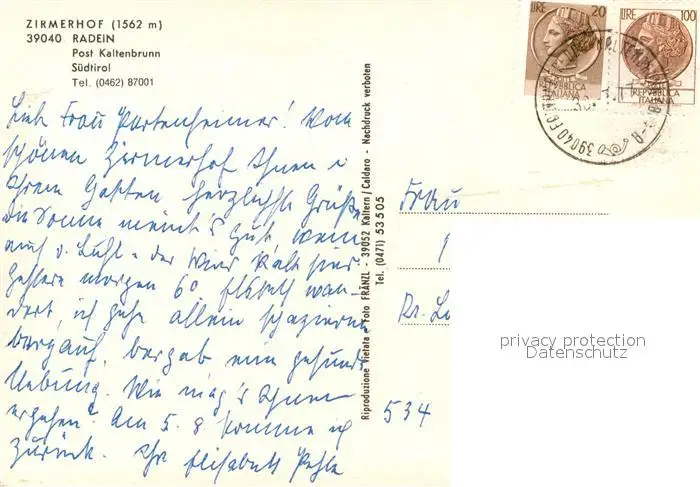 ZIRMERHOF (1562 m)
39040 RADEIN
Post Kaltenbrunn
Südtirol
Tel. (0462) 87001
LIRE 20
REPVBBLICA
ITALIANA
LIRE 100
REPVBBLICA
ITALIANA
39040
Liebe Frau Partenheimer! Vom
schönen Zirmerhof Ihnen u
Ihrem Gatten herzlichste Grüße
die Sonne meint's gut, wenn
auch d. Luft u. der Wind kalt
morgen
ich gehe allein spazieren
bergauf, bergab eine gesunde
Uebung. Wie mag's Ihnen
ergehen? Am 5. 8. komme ich
zurück. Ihre Elisabeth
Reproduzione Vietata - Foto FRÄNZL - 39052 Kaltern / Caldaro - Nachdruck verboten
Tel. (0471) 53505
Frau
534
privacy protection
Datenschutz